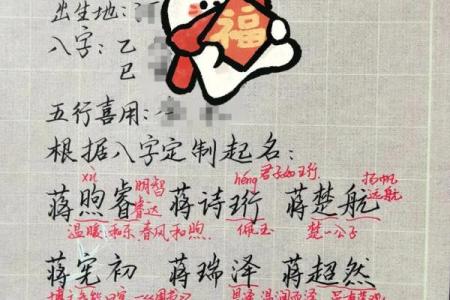 出生地:
福
八字:乙
巳
五行喜用:
根据八字定制起名:
xù 明智 睿达 héng 君子如珩 扬帆 远航
蒋煦睿 蒋诗珩 蒋楚航
温暖和乐 春风和煦 佩玉 楚一公子
蒋宪初 蒋瑞泽 蒋超然